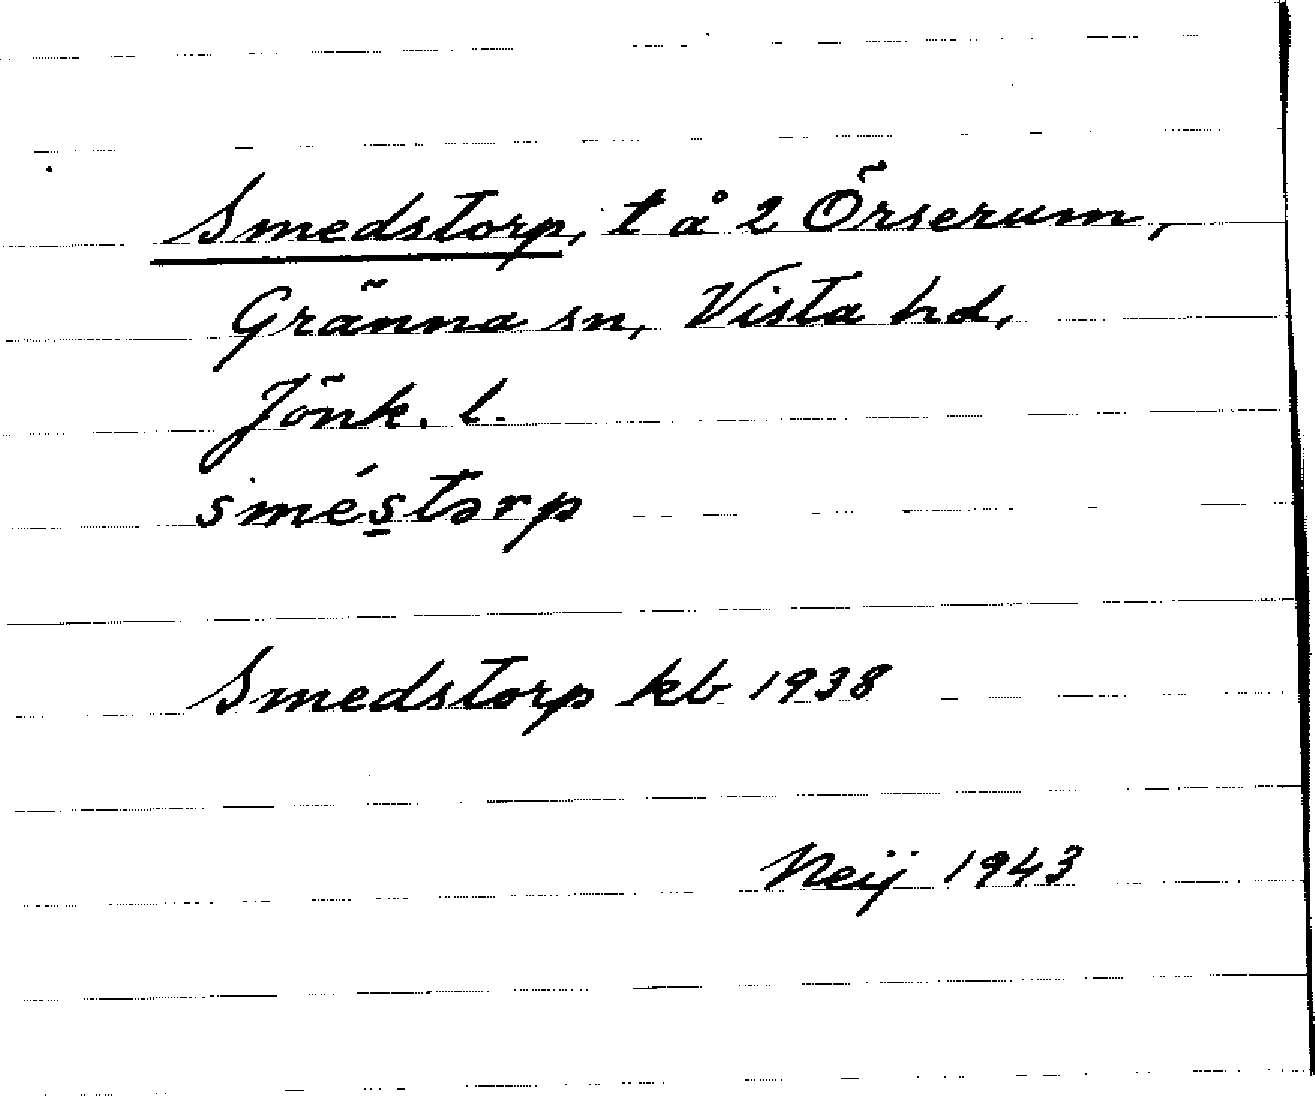 Smedstorp, t å 2 Örserum,
Gränna sn, Vista hd,
Jönk. l.
smés̲tɔrp
Smedstorp kb 1938
Neij 1943